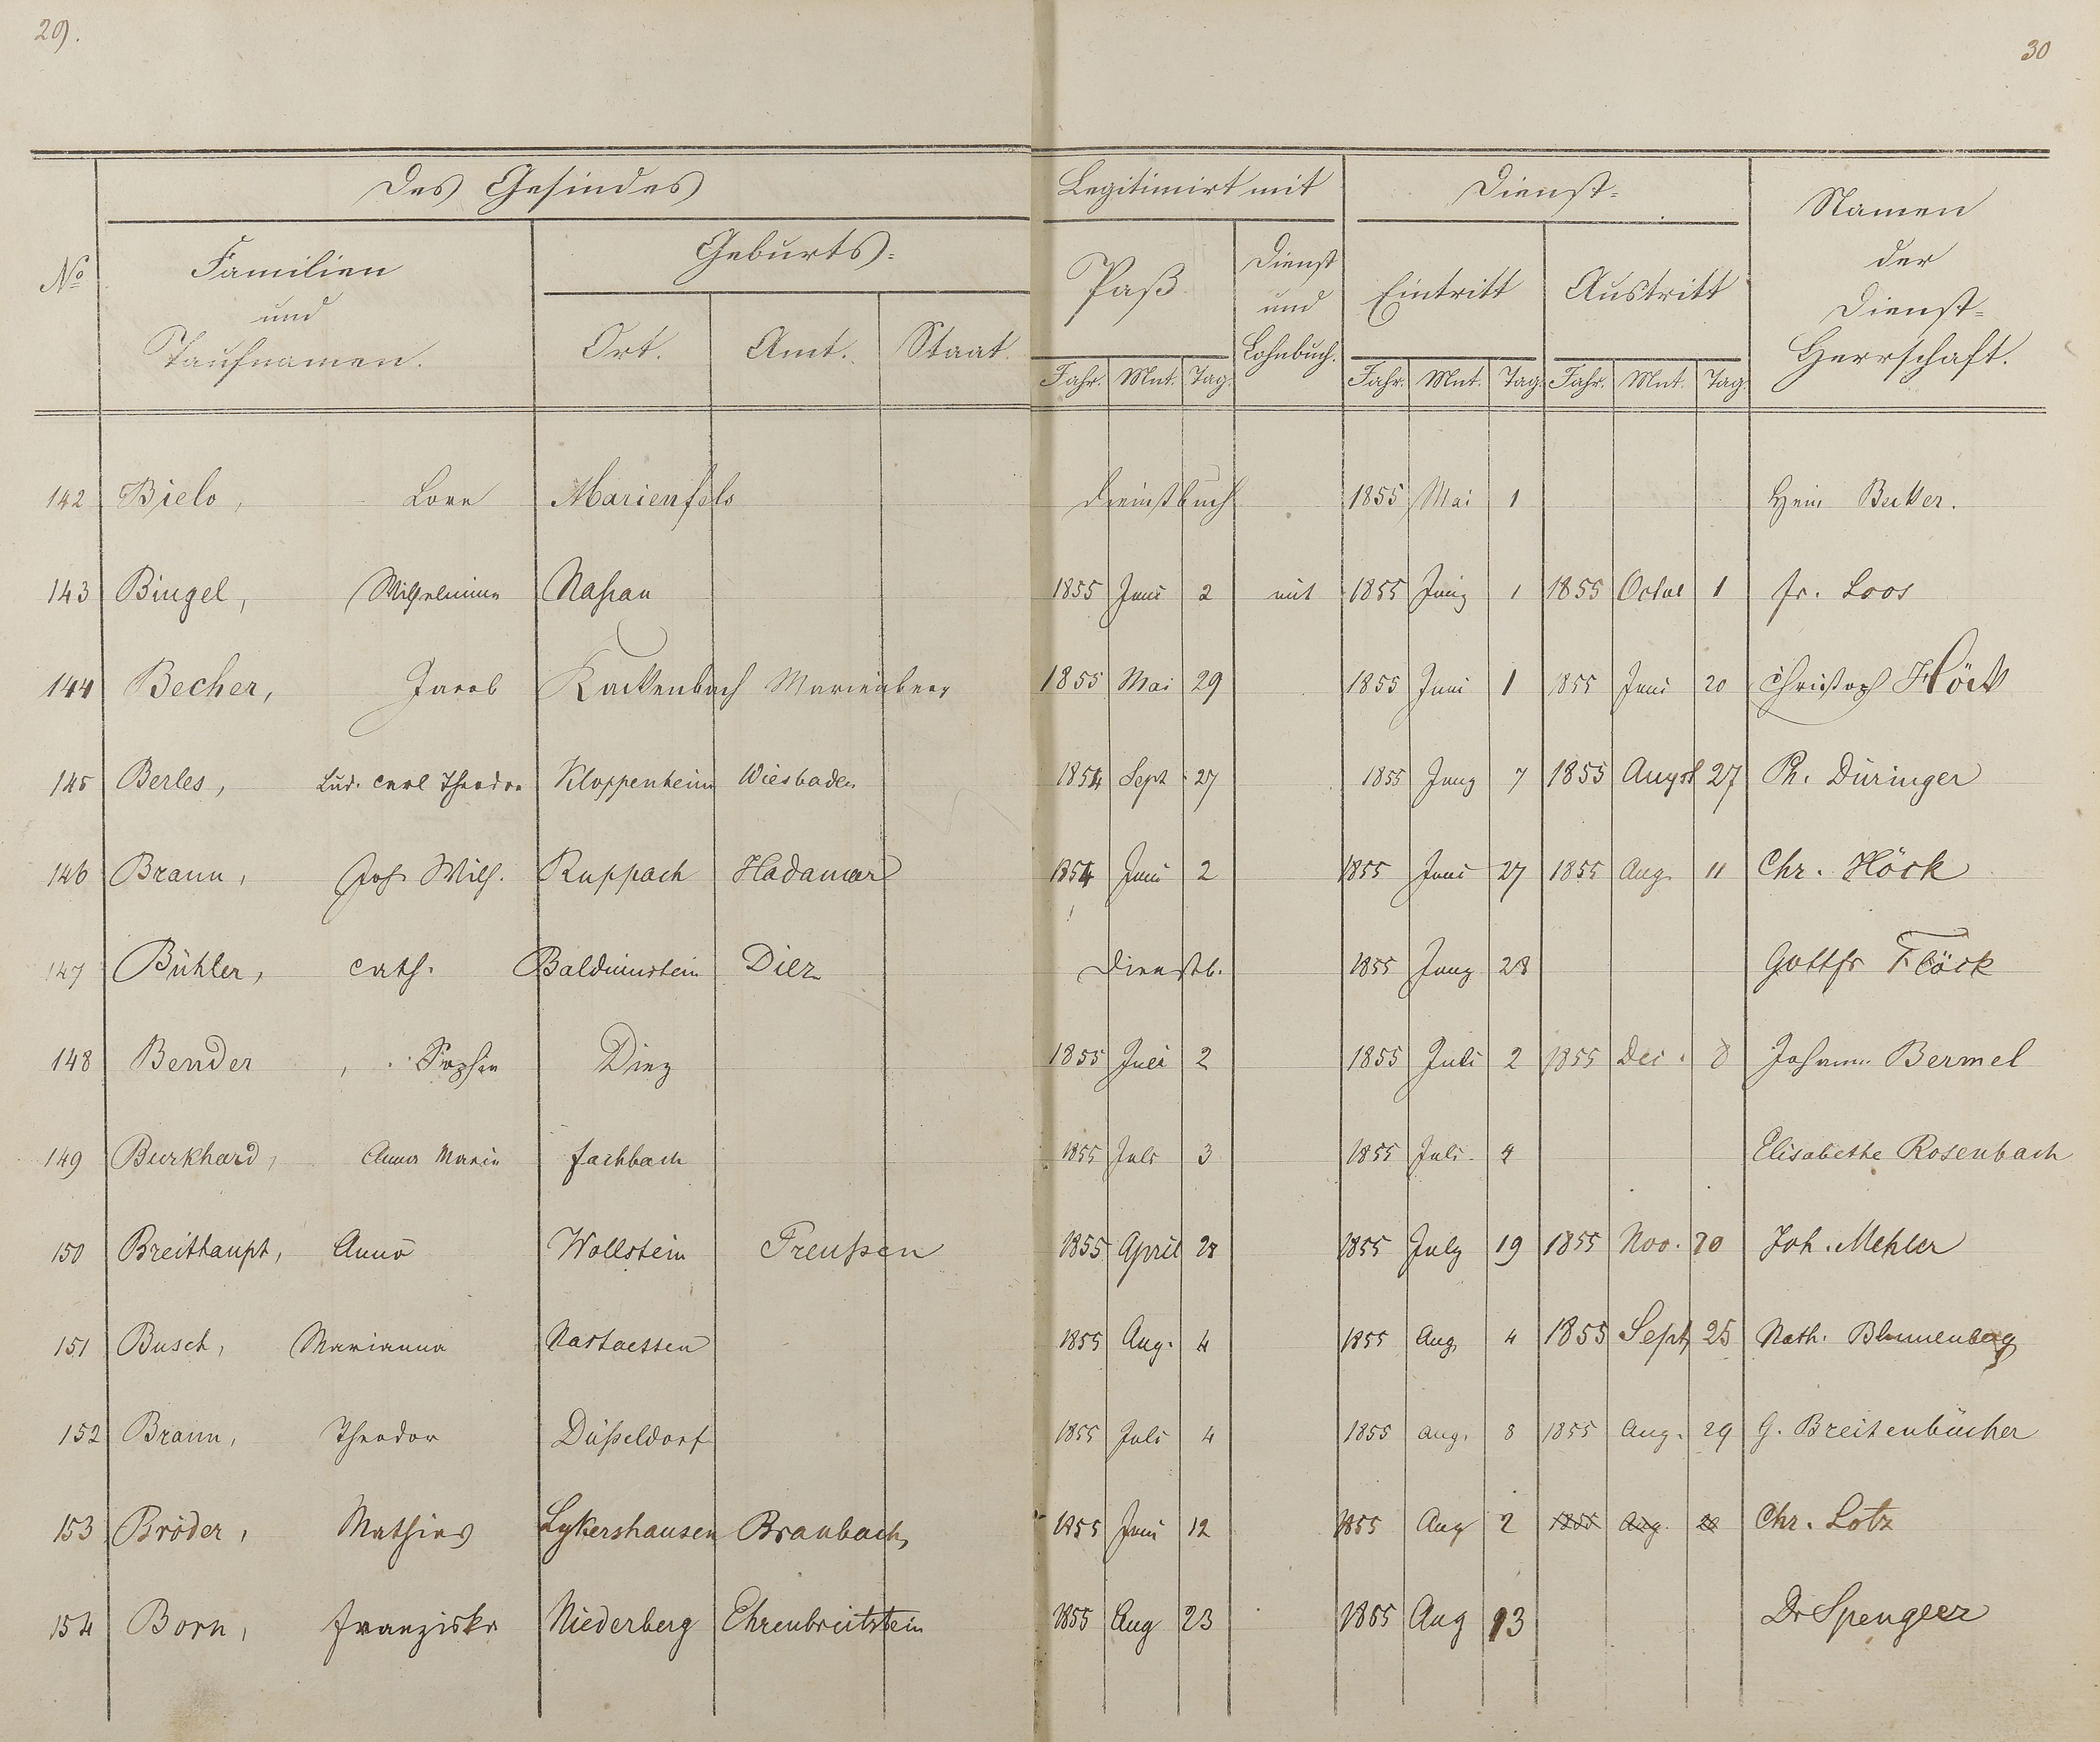 29.
30
Des Gesindes
Legitimirt mit
Dienst=
Namen der Dienst= Herrschaft.
No
Familien und Taufnamen.
Geburts=
Paß
Dienst und Lohnbuch.
Eintritt
Austritt
Ort. Amt. Staat.
Jahr. Mnt. Tag. Jahr. Mnt. Tag. Jahr. Mnt. Tag.
142 Bielo, Marienfels Dienstbuch 1855 Mai 1 Becker.
143 Bingel, Wilhelmine Naßau 1855 Juni 2 mit 1855 Juny 1 1855 1 Fr. Loos
144 Becher, Jacob Kackenbach Marienberg 1855 Mai 29 1855 Juni 1 1855 Juni 20 Christoph Höck
145 Berles, Lud. Carl Theodor Kloppenheim Wiesbaden 1854 Sept 27 1855 Juny 7 1855 Augst 27 Ph. Düringer
146 Braun, Joh Wilh. Ruppach Hadamar 1854 Juni 2 1855 Juni 27 1855 Aug. 11 Chr. Höck
147 Bühler, Cath. Balduinstein Diez Dienstb. 1855 Juny 28 Gottfr Flöck
148 Bender, Sophie Diez 1855 Juli 2 1855 Juli 2 1855 Dec. 8 Johann Bermel
149 Burkhard, Anna Marie Fachbach 1855 Juli 3 1855 Juli 4 Elisabethe Rosenbach
150 Breithaupt, Anna Wollstein Preußen 1855 April 28 1855 July 19 1855 Nov. Joh. Mehler
151 Busch, Marianna Nastaetten 1855 Aug. 4 1855 Aug 4 1855 Sept 25 Nath. Blumenberg
152 Braun, Theodor Düßeldorf 1855 Juli 4 1855 Aug. 8 1855 Aug. 29 G. Breitenbücher
153 Bröder, Mathias Lykershausen Braubach 1855 Juni 12 1855 Aug 2 1855 Aug. Chr. Lotz
154 Born, Franziska Niederberg Ehrenbreitstein 1855 Aug 23 1855 Aug Dr Spengler